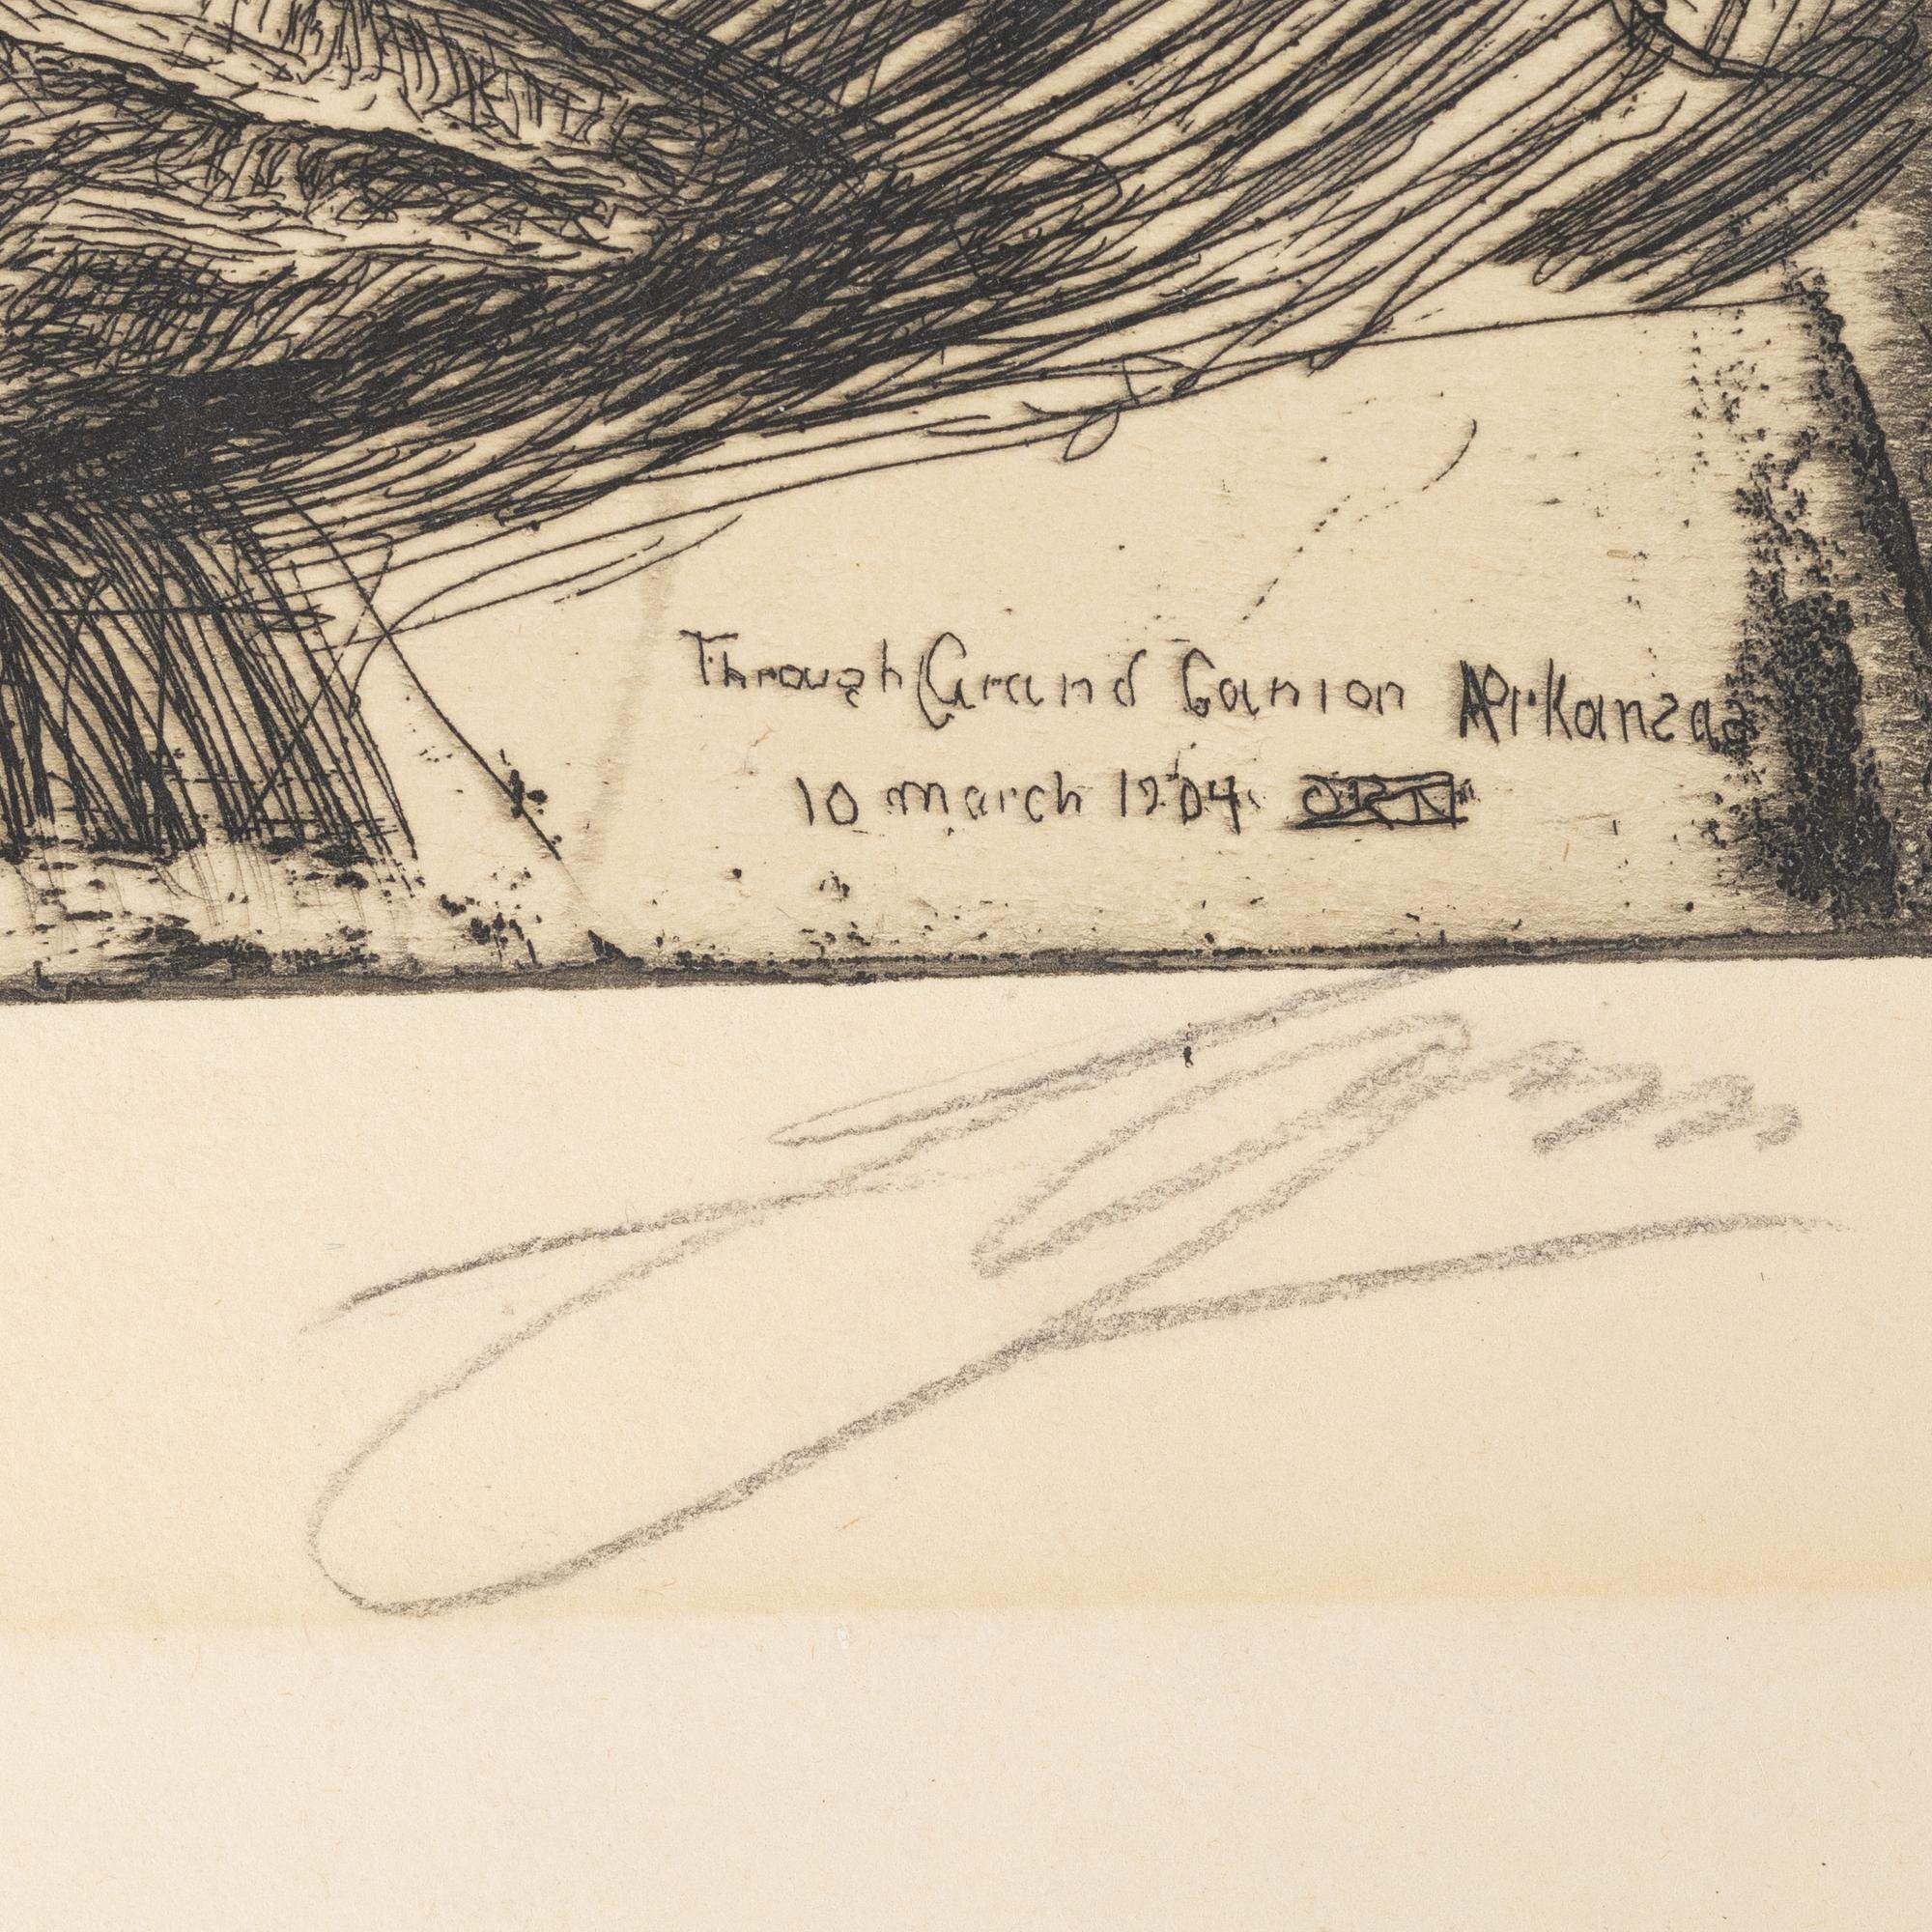 Through Grand Canion Arkanzas
10 march 1904
Zorn